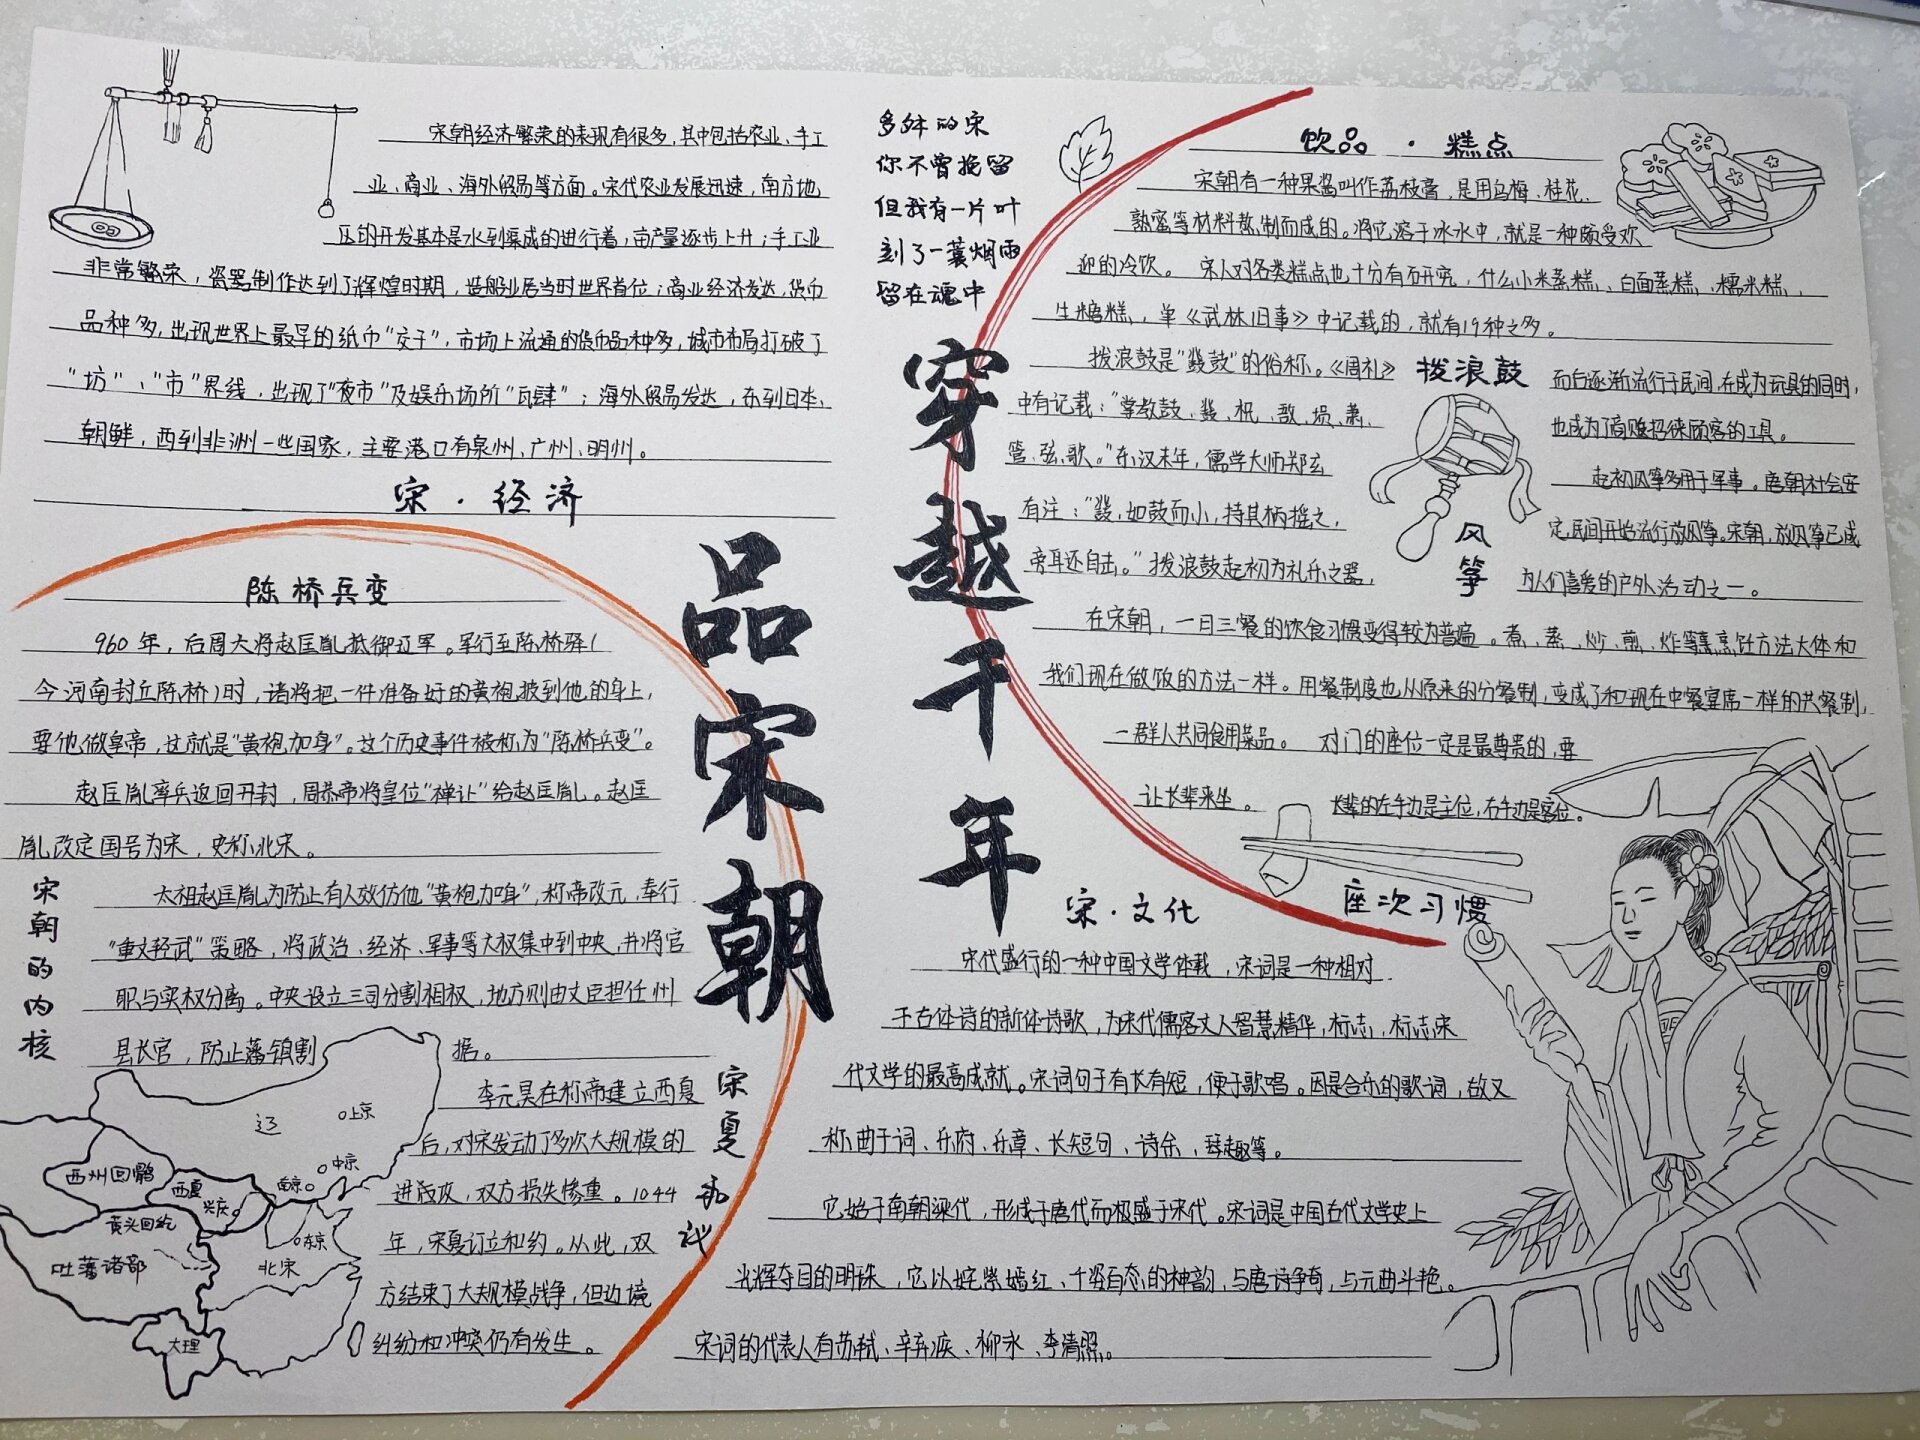 宋朝经济繁荣的表现有很多,其中包括农业、手工
业、商业、海外贸易等方面。宋代农业发展迅速,南方地
区的开发基本是水到渠成的进行着,亩产量逐步上升;手工业
非常繁荣,瓷器制作达到了辉煌时期,造船业居当时世界首位;商业经济发达,货币
品种多,出现世界上最早的纸币“交子”,市场上流通的货币品种多,城市布局打破了
“坊”、“市”界线,出现了“夜市”及娱乐场所“瓦肆”;海外贸易发达,东到日本、
朝鲜,西到非洲一些国家,主要港口有泉州、广州、明州。
宋·经济
陈桥兵变
960年,后周大将赵匡胤抵御辽军。军行至陈桥驿(
今河南封丘陈桥)时,诸将把一件准备好的黄袍披到他的身上,
要他做皇帝,这就是“黄袍加身”。这个历史事件被称为“陈桥兵变”。
赵匡胤率兵返回开封,周恭帝将皇位“禅让”给赵匡胤。赵匡
胤改定国号为宋,史称北宋。
宋朝的内核
太祖赵匡胤为防止有人效仿他“黄袍加身”,称帝改元,奉行
“重文轻武”策略,将政治、经济、军事等大权集中到中央,并将官
职与实权分离。中央设立三司分割相权,地方则由文臣担任州
县长官,防止藩镇割
据。
宋夏和议
李元昊在称帝建立西夏
后,对宋发动了多次大规模的
进攻,双方损失惨重。1044
年,宋夏订立和约。从此,双
方结束了大规模战争,但边境
纠纷和冲突仍有发生。
辽
上京
中京
南京
西州回鹘
西夏
兴庆
黄头回纥
东京
吐蕃诸部
北宋
大理
品宋朝
穿越千年
多好的宋
你不曾挽留
但我有一片叶
刻了一蓑烟雨
留在魂中
饮品·糕点
宋朝有一种果酱叫作荔枝膏,是用乌梅、桂花、
熟蜜等材料熬制而成的。将它溶于冰水中,就是一种颇受欢
迎的冷饮。宋人对各类糕点也十分有研究,什么小米蒸糕、白面蒸糕、糯米糕、
生糖糕,单《武林旧事》中记载的,就有19种之多。
拨浪鼓是“鼗鼓”的俗称。《周礼》
中有记载:“掌教鼓、鼗、柷、敔、埙、萧、
管、弦、歌。”东汉末年,儒学大师郑玄
有注:“鼗,如鼓而小,持其柄摇之,
旁耳还自击。”拨浪鼓起初为礼乐之器,
拨浪鼓
而后逐渐流行于民间,在成为玩具的同时,
也成为了商贩招徕顾客的工具。
风筝
起初风筝多用于军事。唐朝社会安
定,民间开始流行放风筝。宋朝,放风筝已成
为人们喜爱的户外活动之一。
在宋朝,一日三餐的饮食习惯变得较为普遍。煮、蒸、炒、煎、炸等烹饪方法大体和
我们现在做饭的方法一样。用餐制度也从原来的分餐制,变成了和现在中餐宴席一样的共餐制,
一群人共同食用菜品。对门的座位一定是最尊贵的,要
让长辈来坐。长辈的左手边是主位,右手边是客位。
座次习惯
宋·文化
宋代盛行的一种中国文学体裁,宋词是一种相对
于古体诗的新体诗歌,为宋代儒客文人智慧精华,标志,标志宋
代文学的最高成就。宋词句子有长有短,便于歌唱。因是合乐的歌词,故又
称曲子词、乐府、乐章、长短句、诗余、琴趣等。
它始于南朝梁代,形成于唐代而极盛于宋代。宋词是中国古代文学史上
光辉夺目的明珠,它以姹紫嫣红、千姿百态的神韵,与唐诗争奇,与元曲斗艳。
宋词的代表人有苏轼、辛弃疾、柳永、李清照。